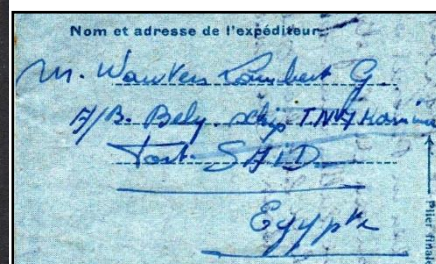 Nom et adresse de l'expéditeur
M. Wauters Lambert G.
A/B. Belg. ship T.N.A Kamina
Port-SAID
Egypte
Plier finale